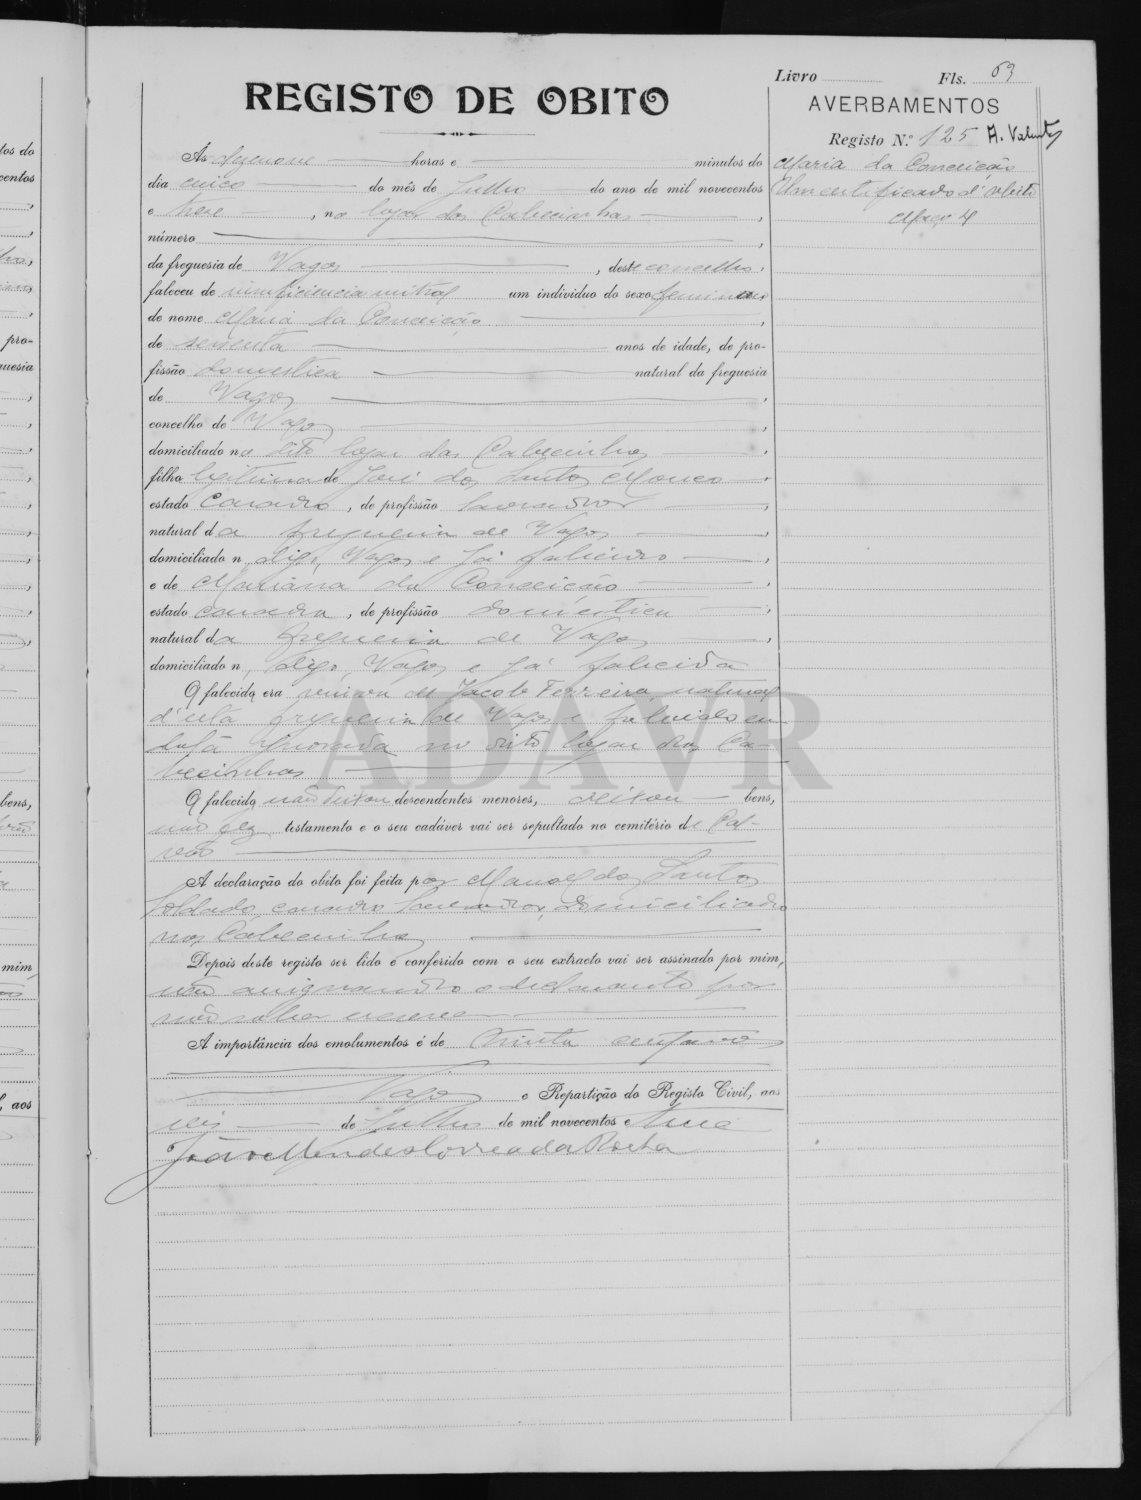 Livro Fls. 63
REGISTO DE OBITO
AVERBAMENTOS
Registo N.º 125 A. Valente
Maria da Conceição
Um certificado d'obito
Maço 4
Ás dezenove horas e minutos do
dia cinco do mês de Julho do ano de mil novecentos
e treze, no logar das Cabecinhas,
número,
da freguesia de Vagos, deste concelho,
faleceu de insuficiencia mitral um individuo do sexo feminino
de nome Maria da Conceição,
de sessenta anos de idade, de pro-
fissão domestica natural da freguesia
de Vagos,
concelho de Vagos,
domiciliado no dito logar das Cabecinhas,
filha legitima de José dos Santos Mouco,
estado casado, de profissão lavrador,
natural da freguesia de Vagos,
domiciliado n digo, Vagos e já falecido,
e de Mariana da Conceição,
estado casada, de profissão domestica,
natural da freguesia de Vagos,
domiciliado n, digo, Vagos e já falecida
O falecida era viuva de Jacob Ferreira, natural
d'esta freguesia de Vagos e falecido em
no dito logar das Ca-
becinhas
O falecida não deixou descendentes menores, deixou bens,
não fez testamento e o seu cadáver vai ser sepultado no cemitério de Cal-
vão
A declaração do obito foi feita por Manoel dos Santos
Soldado, casado, lavrador, domiciliado
nas Cabecinhas
Depois deste registo ser lido e conferido com o seu extracto vai ser assinado por mim,
não assignando o declarante por
não saber escrever
A importância dos emolumentos é de trinta centavos
Vagos e Repartição do Registo Civil, aos
seis de Julho de mil novecentos e treze
João Mendes Correa da Rocha
ADAVR